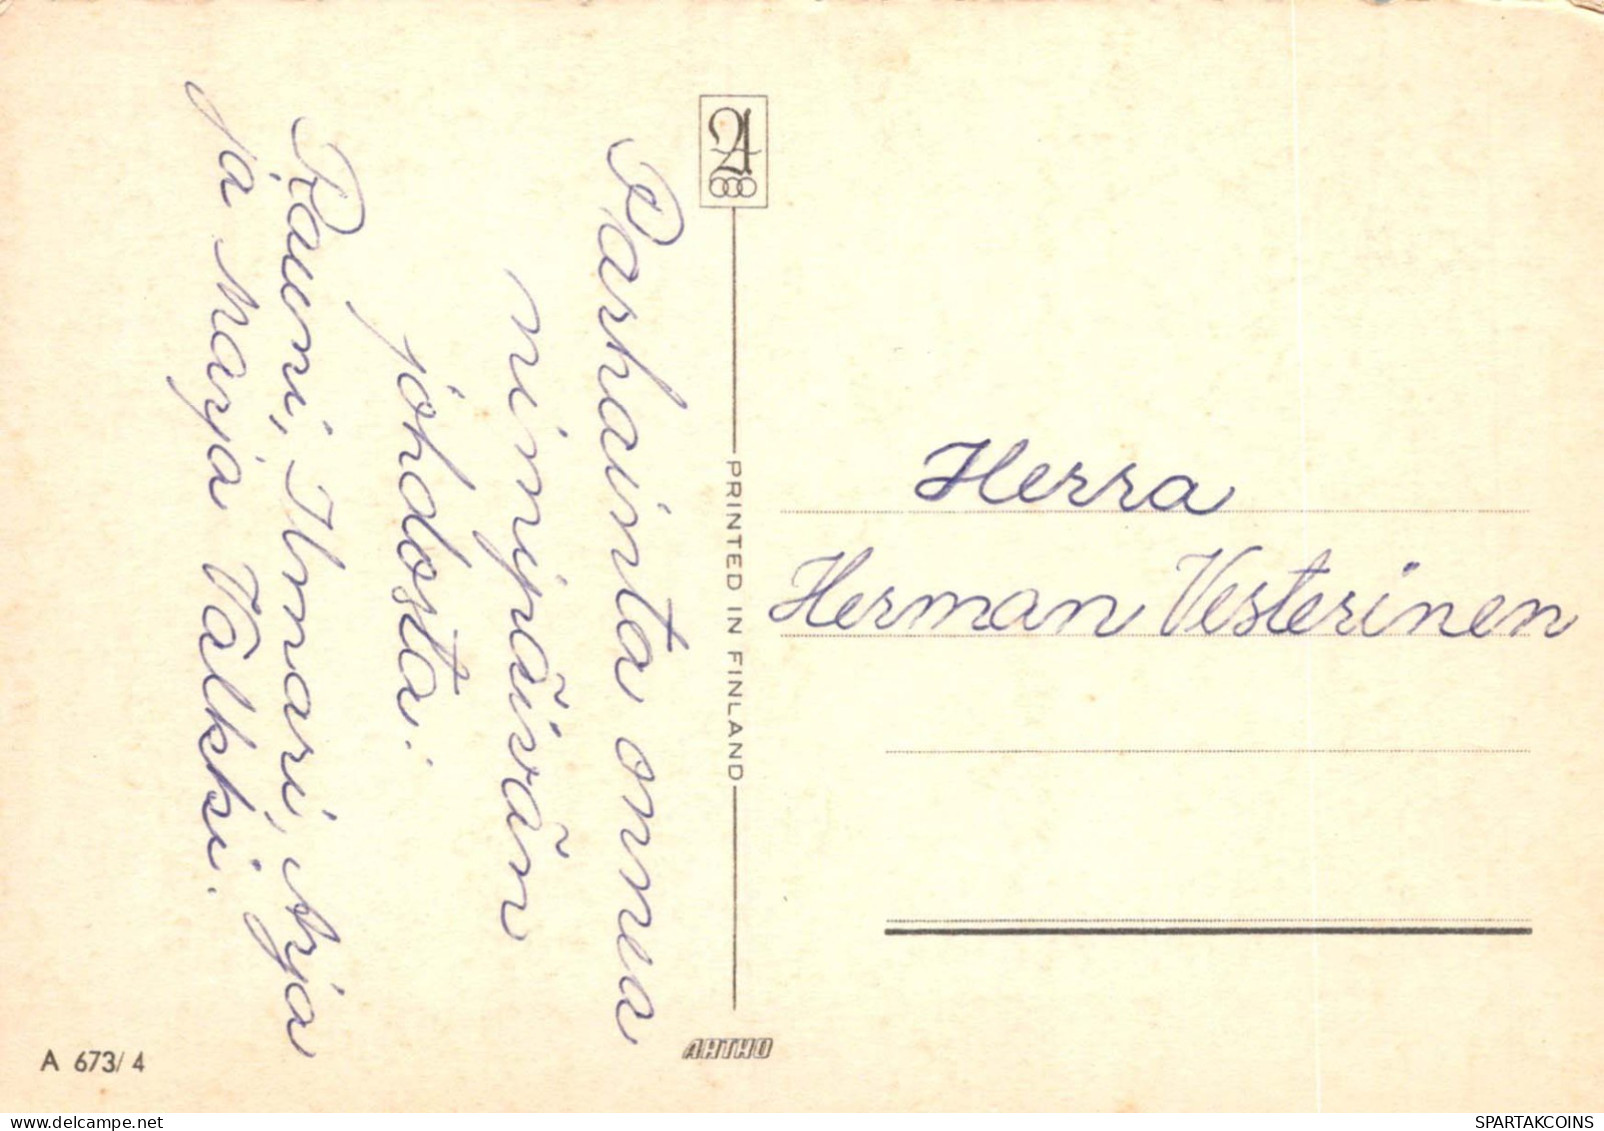 Parhainta onnea
nimipäivän
johdosta.
Rauni, Ilmari, Arja
ja Marja Talkki.
PRINTED IN FINLAND
Herra
Herman Vesterinen
A 673/4
ARTKO
www.delcampe.net
SPARTAKCOINS